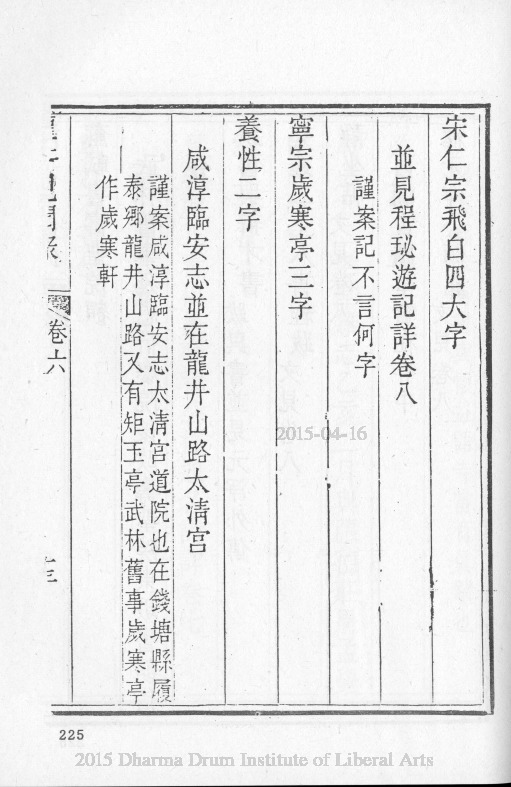 宋仁宗飛白四大字
並見程珌遊記詳卷八
謹案記不言何字
寧宗歲寒亭三字
養性二字
咸淳臨安志並在龍井山路太清宮
謹案咸淳臨安志太清宮道院也在錢塘縣履
泰鄉龍井山路又有矩玉亭武林舊事歲寒亭
作歲寒軒
卷六
2015-04-16
225
2015 Dharma Drum Institute of Liberal Arts